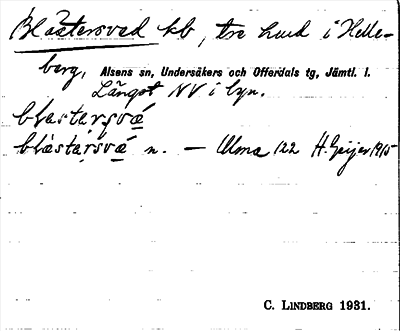 Blåstersved kb, tre hus i Helle-
berg, Alsens sn, Undersåkers och Offerdals tg, Jämtl. l.
Längst NV i byn.
blastarsvá
blåstarsvá n. — Ulma 122 H. Geijer 1915
C. LINDBERG 1931.